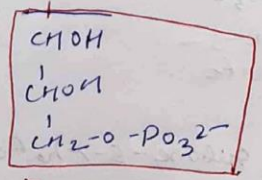 CHOH
CHOH
CH2-O-PO3 2-